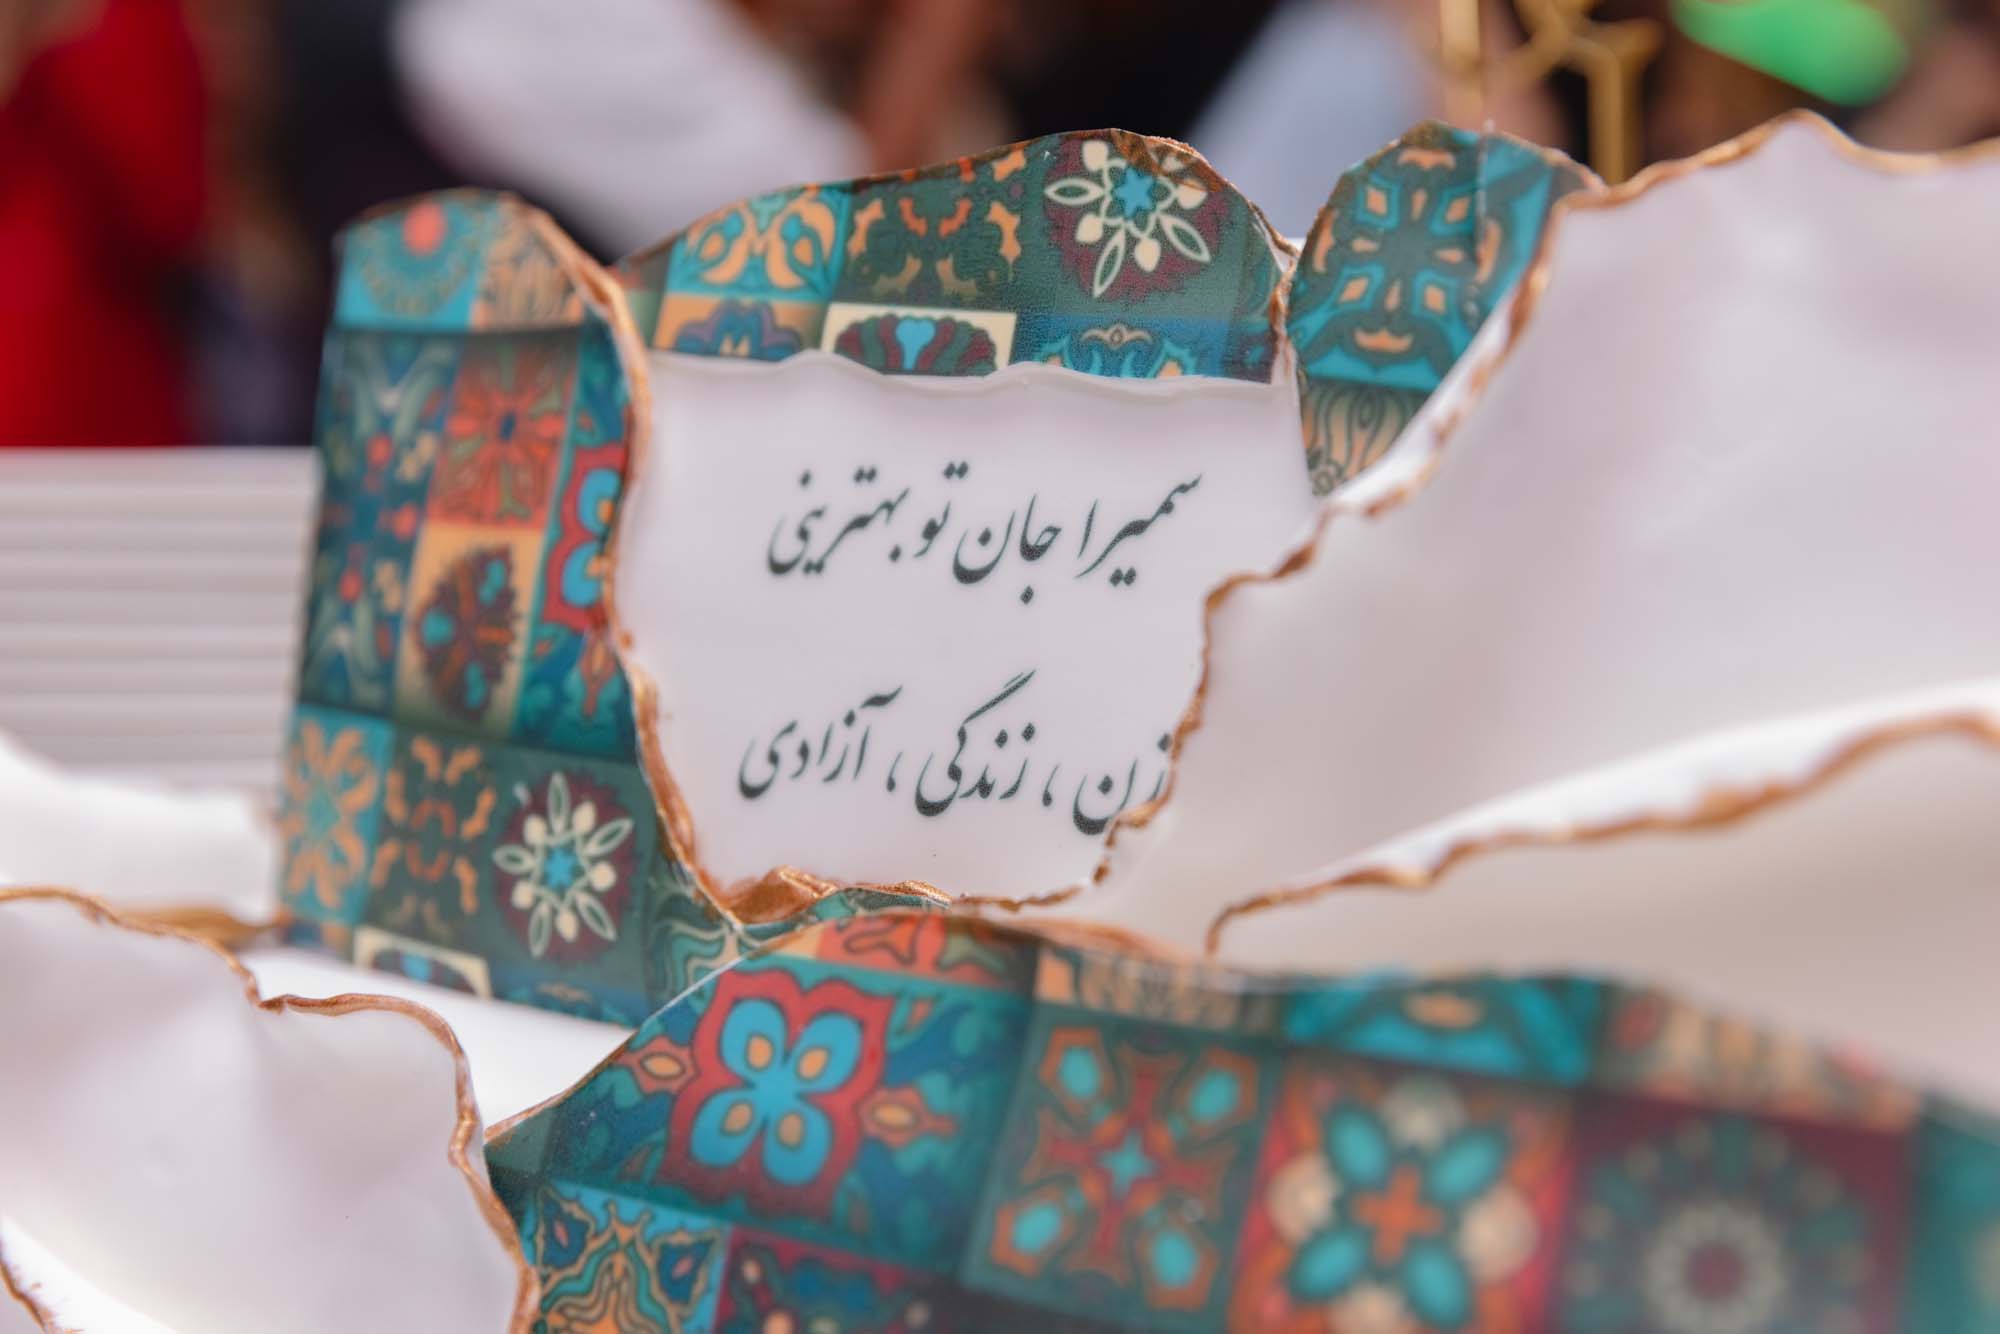 سمیرا جان تو بهترینی
زن ، زندگی ، آزادی